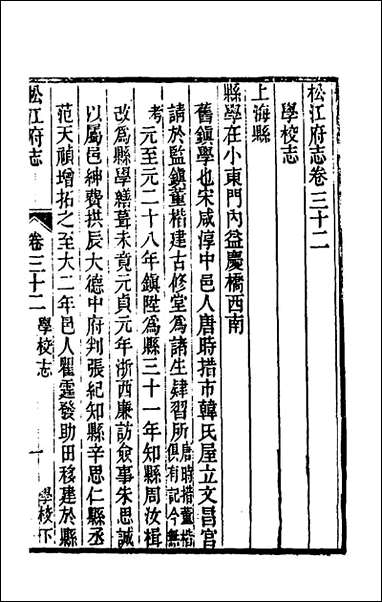 松江府志卷三十二
學校志
上海縣
縣學在小東門內益慶橋西南
舊鎮學也宋咸淳中邑人唐時措市韓氏屋立文昌宮
請於監鎮董楷建古修堂爲諸生肄習所唐時措董楷俱有記今無
考元至元二十八年鎮陞爲縣三十一年知縣周汝楫
改爲縣學繕葺未竟元貞元年浙西廉訪僉事朱思誠
以屬邑紳費拱辰大德中府判張紀知縣辛思仁縣丞
范天禎增拓之至大二年邑人瞿霆發助田移建於縣
松江府志
卷三十二 學校志
一
學校下